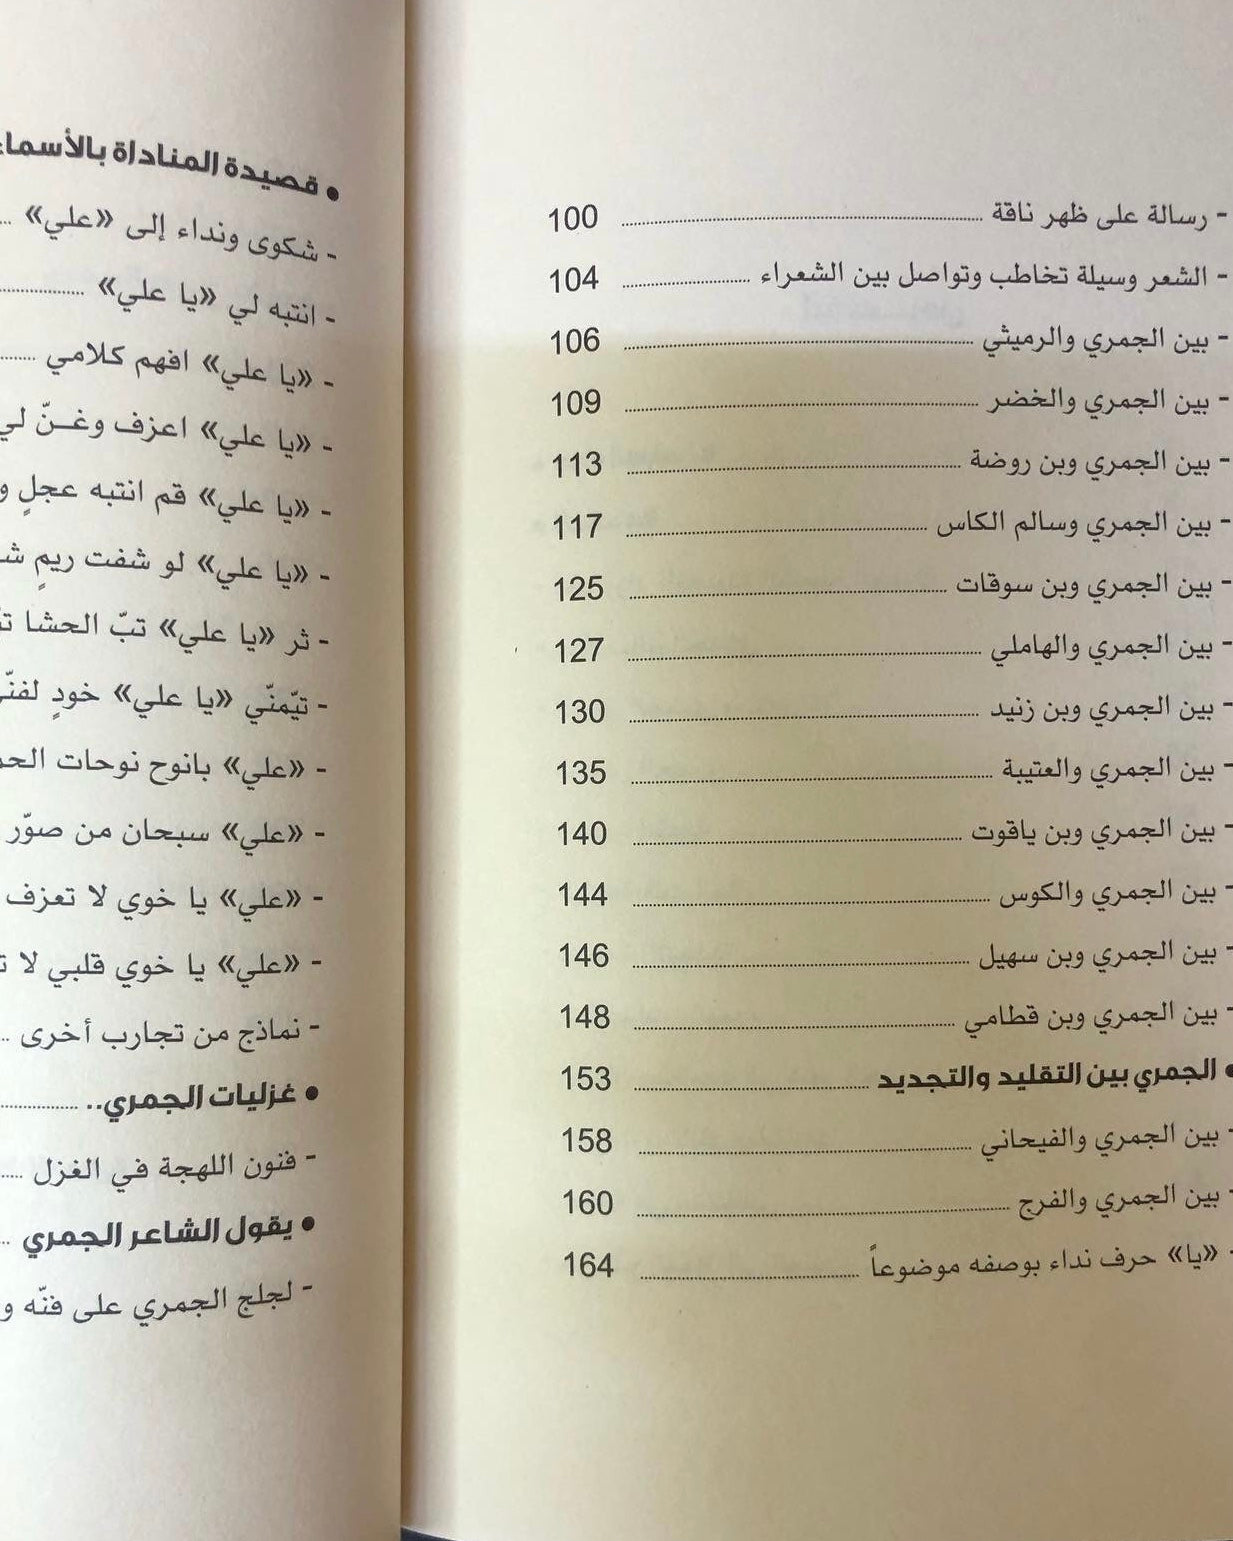 - رسالة على ظهر ناقة ........ 100
- الشعر وسيلة تخاطب وتواصل بين الشعراء ........ 104
- بين الجمري والرميثي ........ 106
- بين الجمري والخضر ........ 109
- بين الجمري وبن روضة ........ 113
- بين الجمري وسالم الكاس ........ 117
- بين الجمري وبن سوقات ........ 125
- بين الجمري والهاملي ........ 127
- بين الجمري وبن زنيد ........ 130
- بين الجمري والعتيبة ........ 135
- بين الجمري وبن ياقوت ........ 140
- بين الجمري والكوس ........ 144
- بين الجمري وبن سهيل ........ 146
- بين الجمري وبن قطامي ........ 148
• الجمري بين التقليد والتجديد ........ 153
- بين الجمري والفيحاني ........ 158
- بين الجمري والفرج ........ 160
- «يا» حرف نداء بوصفه موضوعاً ........ 164
• قصيدة المناداة بالأسماء
- شكوى ونداء إلى «علي» ...
- انتبه لي «يا علي» ........
- «يا علي» افهم كلامي ......
- «يا علي» اعزف وغـنّ لي
- «يا علي» قم انتبه عجلٍ و
- «يا علي» لو شفت ريمٍ
- ثر «يا علي» تبّ الحشا
- تيّمنّي «يا علي» خودٍ
- «علي» بانوح نوحات
- «علي» سبحان من صوّر
- «علي» يا خوي لا تعزف
- «علي» يا خوي قلبي لا
- نماذج من تجارب أخرى ..
• غزليات الجمري.. ........
- فنون اللهجة في الغزل .....
• يقول الشاعر الجمري ..
- لجلج الجمري على فنّه و